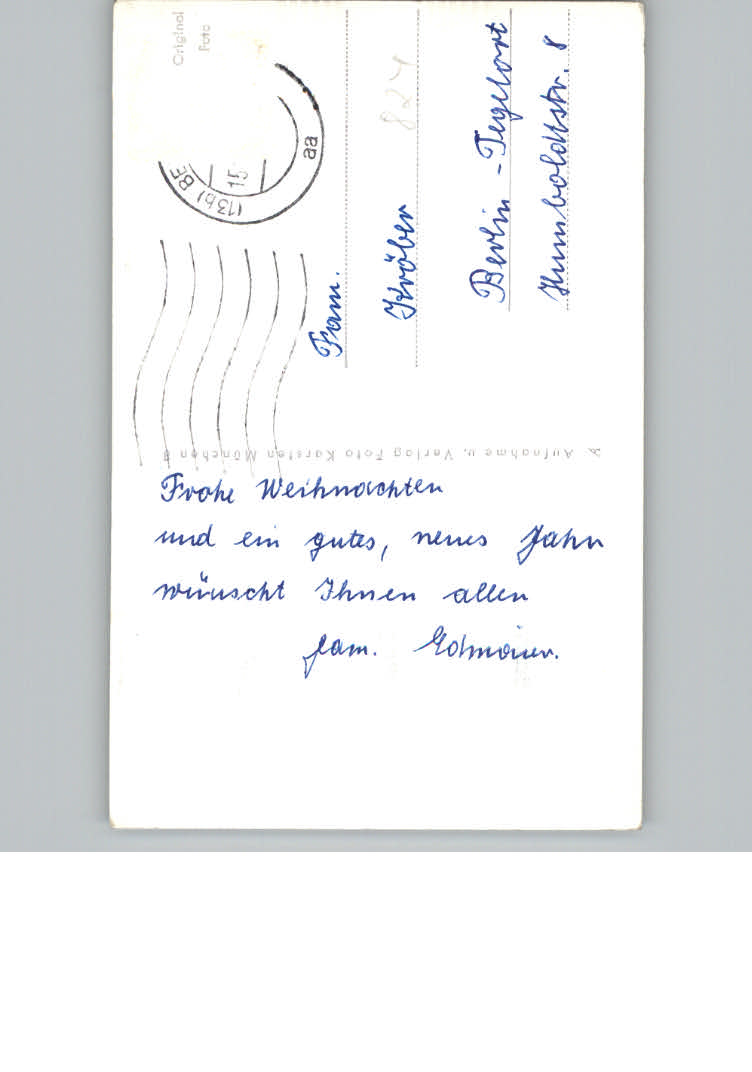 Original
Foto
(13b) BE
15.
aa
Fam.
Kröber
824
Berlin - Tegelort
Humboldtstr. 8
Aufnahme u. Verlag Foto Karsten München
Frohe Weihnachten
und ein gutes, neues Jahr
wünscht Ihnen allen
Fam.